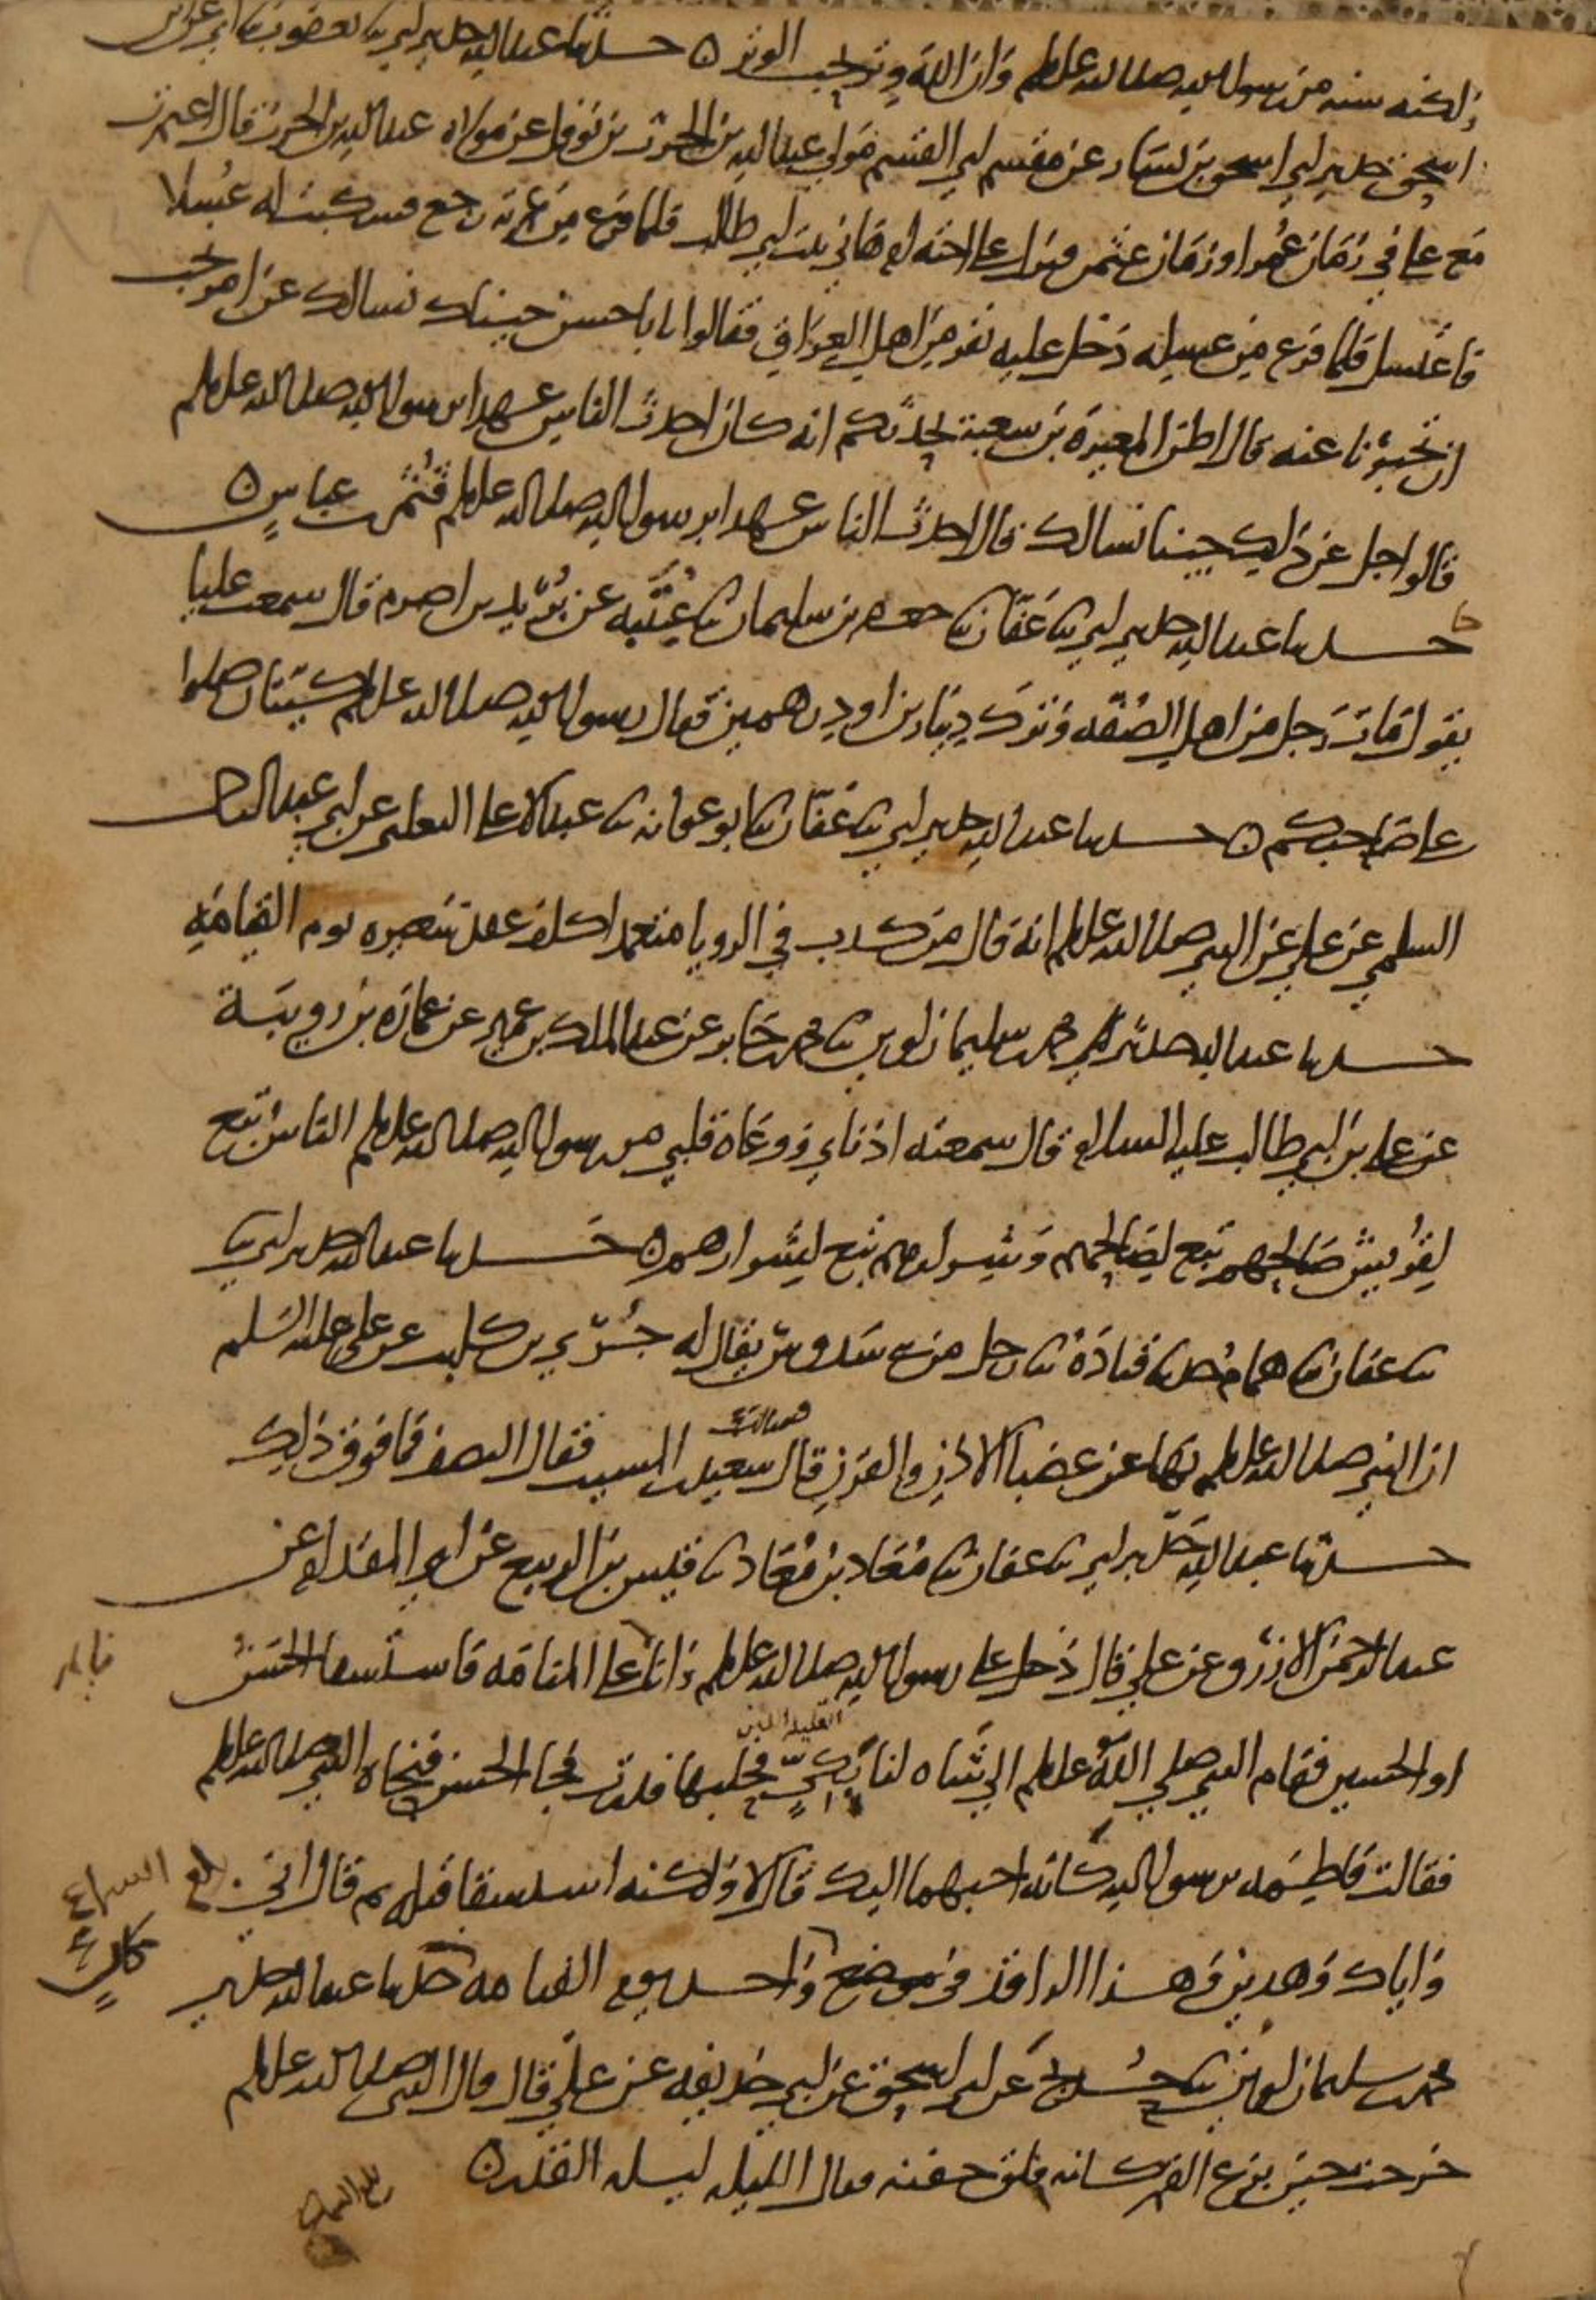 ولكنه سنه من رسول الله صلى الله عليه وسلم وان الله وتر يحب الوتر ه حدثنا عبد الله حدثني ابي ثنا يعقوب ثنا ابي عن ابن
اسحق حدثني ابي اسحق بن يسار عن مقسم ابي القسم مولى عبد الله بن الحرث بن نوفل عن مولاه عبد الله بن الحرث قال اعتمرت
مع علي في زمان عمر او زمان عثمن فنزل على اخته ام هاني بنت ابي طالب فلما فرغ من عمرته رجع فسكبت له غسلا
فاغتسل فلما فرغ من غسله دخل عليه نفر من اهل العراق فقالوا يابا حسن جيناك نسالك عن امر نحب
ان تخبرنا عنه قال اظن المغيرة بن شعبة يحدثكم انه كان احدث الناس عهدا برسول الله صلى الله عليه وسلم
قالوا اجل عن ذلك جينا نسالك قال احدث الناس عهدا برسول الله صلى الله عليه وسلم قثم بن عباس ه
حدثنا عبد الله حدثني ابي ثنا عفان ثنا جعفر بن سليمان ثنا عتيبه عن بريد بن اصرم قال سمعت عليا
يقول مات رجل من اهل الصفه وترك دينارين او درهمين فقال رسول الله صلى الله عليه وسلم كيتان صلوا
على صاحبكم ه حدثنا عبد الله حدثني ابي ثنا عفان ثنا ابو عوانه ثنا عبد الاعلى الثعلبي عن ابي عبد الرحمن
السلمي عن علي عن النبي صلى الله عليه وسلم انه قال من كذب في الرويا متعمدا كلف عقد شعيره يوم القيامه
حدثنا عبد الله حدثني محمد بن سليمان لوين ثنا محمد بن جابر عن عبد الملك بن عمير عن عماره بن رويبة
عن علي بن ابي طالب عليه السلام قال سمعته اذناي ووعاه قلبي من رسول الله صلى الله عليه وسلم الناس تبع
لقريش صالحهم تبع لصالحهم وشرارهم تبع لشرارهم ه حدثنا عبد الله حدثني ابي ثنا
ثنا عفان ثنا همام حدثنا قتادة ثنا رجل من بني سدوس يقال له جري بن كليب عن علي عليه السلم
ان النبي صلى الله عليه وسلم نهى عن عضبا الاذن والقرن قال فسالت سعيد بن المسيب فقال النصف فما فوق ذلك
حدثنا عبد الله حدثني ابي ثنا عفان ثنا معاذ بن معاذ ثنا قيس بن الربيع عن ابي المقدام عن
عبد الرحمن الازرق عن علي قال دخل علي رسول الله صلى الله عليه وسلم وانا على المنامه فاستسقا الحسن
او الحسين فقام النبي صلى الله عليه وسلم الى شاه لنا بكي فحلبها فدرت فجا الحسن فنحاه النبي صلى الله عليه وسلم
القليلة اللبن
فقالت فاطمه يرسول الله كانه احبهما اليك قال لا ولكنه استسقا قبله ثم قال اني
واياك وهذين وهذا الراقد في موضع واحد يوم القيامه حدثنا عبد الله حدثني
محمد بن سليمان لوين ثنا حديج عن ابي اسحق عن ابي حذيفه عن علي قال قال النبي صلى الله عليه وسلم
خرجت حين بزغ القمر كانه فلق جفنه فقال الليله ليله القدر ه